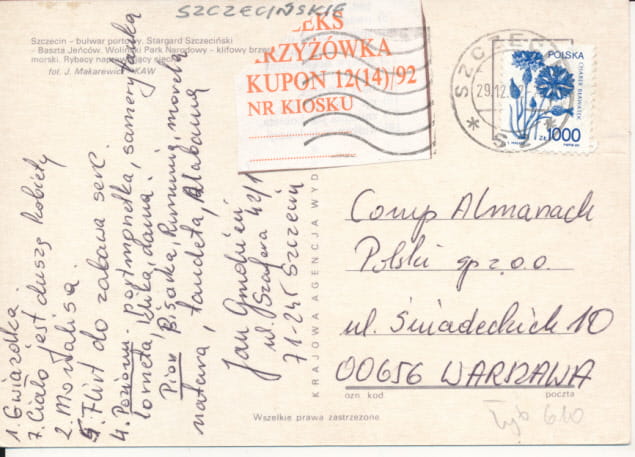 SZCZECIŃSKIE
Szczecin – bulwar portowy. Stargard Szczeciński
– Baszta Jeńców. Woliński Park Narodowy – klifowy brzeg
morski. Rybacy naprawiający sieci
fot. J. Makarewicz KAW
EKS
KRZYŻÓWKA
KUPON 12(14)/92
NR KIOSKU
SZCZECIN
29.12.92
POLSKA
CHABER BŁAWATEK
zł 1000
1. Gwiazdka
7. Ciało jest duszą kobiety
2. Monalisa
5. Flirt to zabawa serc
4. Poziomo: portmonetka, samarytanka
lorneta, klika, dama
Pion Bisacka, Rimini, moreta
natura, tandeta, Alabama
Jan
ul. Szafera 42/1
71-245 Szczecin
KRAJOWA AGENCJA WYD
Comp Almanach
Polski sp z.o.o.
ul. Śniadeckich 10
00656 WARSZAWA
ozn kod poczta
Wszelkie prawa zastrzeżone
610